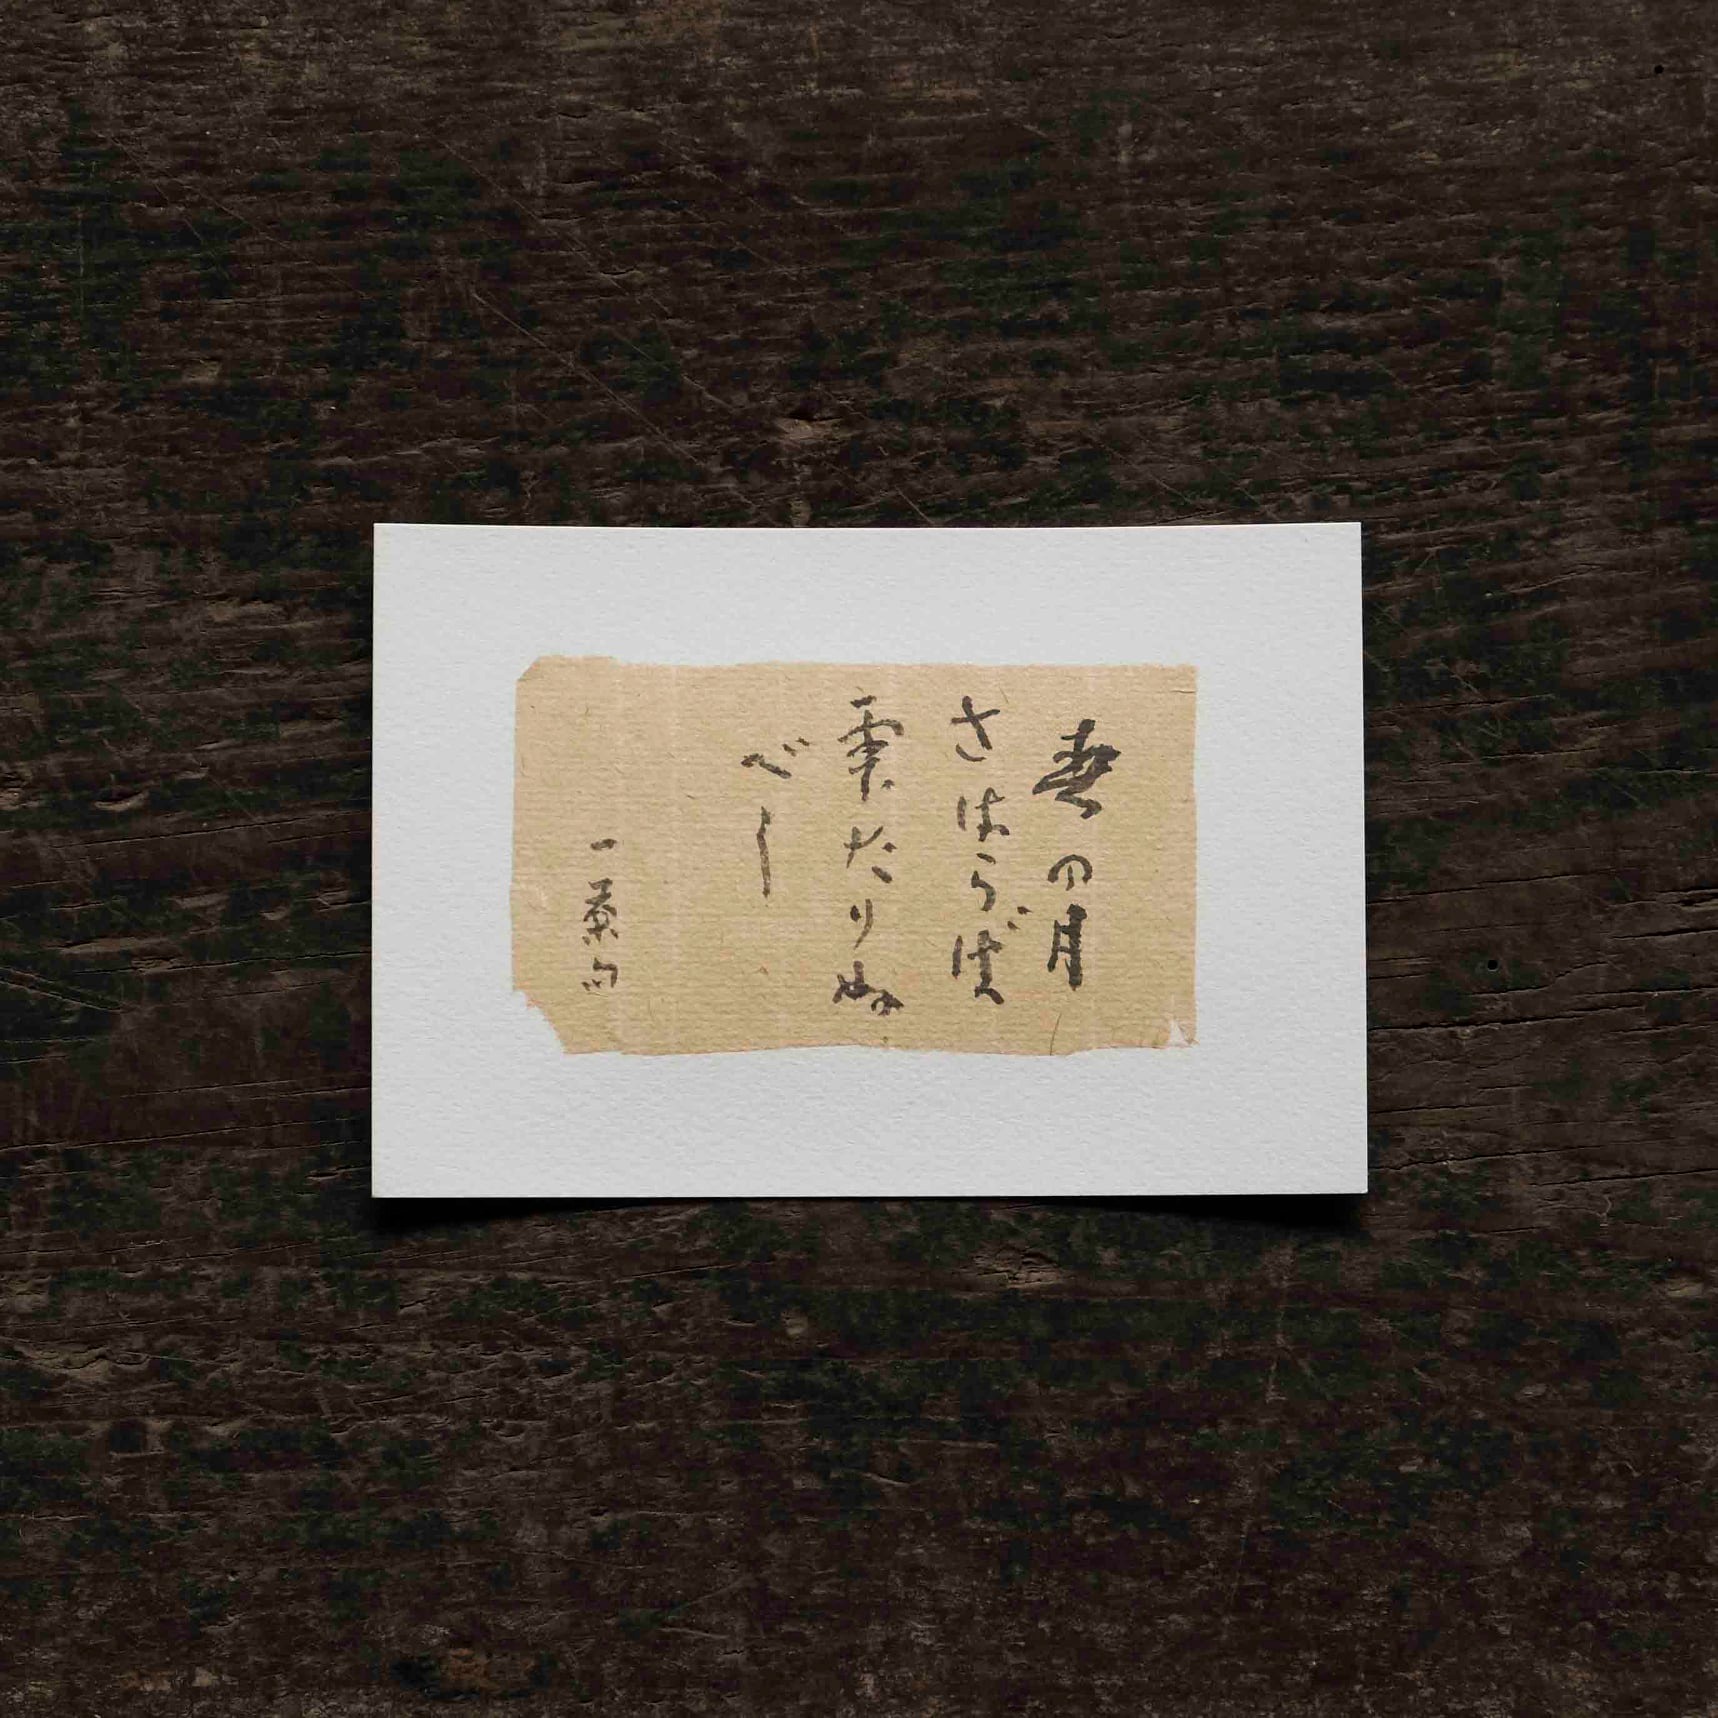 春の月
さはらば
雫たりぬ
べし
一茶句